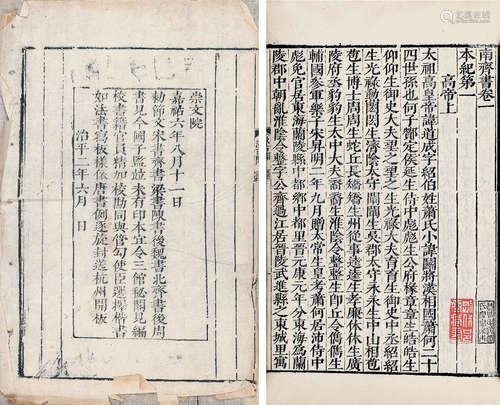 南齊書卷一
本紀第一
高帝上
太祖高皇帝諱道成字紹伯姓蕭氏小諱鬬將漢相國蕭何二十
四世孫也何子酇定侯延生侍中彪彪生公府掾章章生皓皓生
仰仰生御史大夫望之望之生光祿大夫育育生御史中丞紹紹
生光祿勳閎閎生濟陰太守闡闡生吳郡太守永永生中山相苞
苞生博士周周生蛇丘長矯矯生州從事逵逵生孝廉休休生廣
陵府丞豹豹生太中大夫裔裔生淮陰令整整生即丘令儁儁生
輔國參軍樂子宋昇明二年九月贈太常生皇考蕭何居沛侍中
彪免官居東海蘭陵縣中都鄉中都里晉元康元年分東海爲蘭
陵郡中朝亂淮陰令整字公齊過江居晉陵武進縣之東城里寓
崇文院
嘉祐六年八月十一日
勑節文宋書齊書梁書陳書後魏書北齊書後周
書見今國子監並未有印本宜令三館秘閣見編
校書籍官員精加校勘同與管勾使臣選擇楷書
如法書寫板樣依唐書例逐旋封送杭州開板
治平二年六月 日